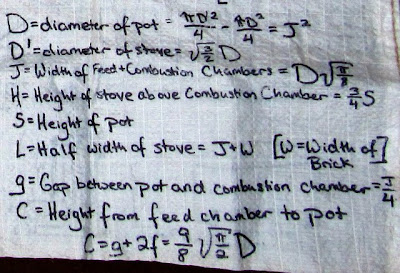 D=diameter of pot = πD'²/4 - πD²/4 = J²
D'=diameter of stove=√3/2 D
J=Width of Feed+Combustion Chambers = D√π/8
H=Height of stove above Combustion Chamber = 3/4 S
S=Height of pot
L=Half width of stove = J+W [W=Width of Brick]
g=Gap between pot and combustion chamber=J/4
C=Height from feed chamber to pot
C=g+2J=9/8 √π/2 D